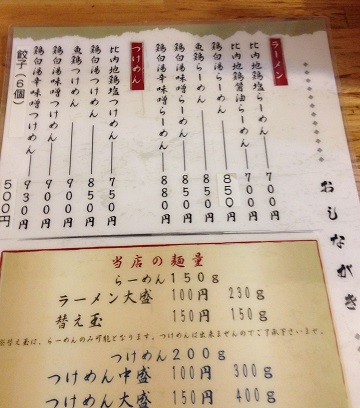 おしながき
ラーメン
比内地鶏塩らーめん 700円
比内地鶏醤油らーめん 700円
鶏白湯らーめん 850円
魚鶏らーめん 850円
鶏白湯味噌らーめん 850円
鶏白湯辛味噌らーめん 880円
つけめん
比内地鶏塩つけめん 750円
鶏白湯つけめん 850円
魚鶏つけめん 900円
鶏白湯味噌つけめん 900円
鶏白湯辛味噌つけめん 930円
餃子(6個) 500円
当店の麺量
らーめん 150g
ラーメン大盛 100円 230g
替え玉 150円 150g
※替え玉は、らーめんのみ可能となります。つけめんは出来ませんのでご了承下さいませ。
つけめん 200g
つけめん中盛 100円 300g
つけめん大盛 150円 400g